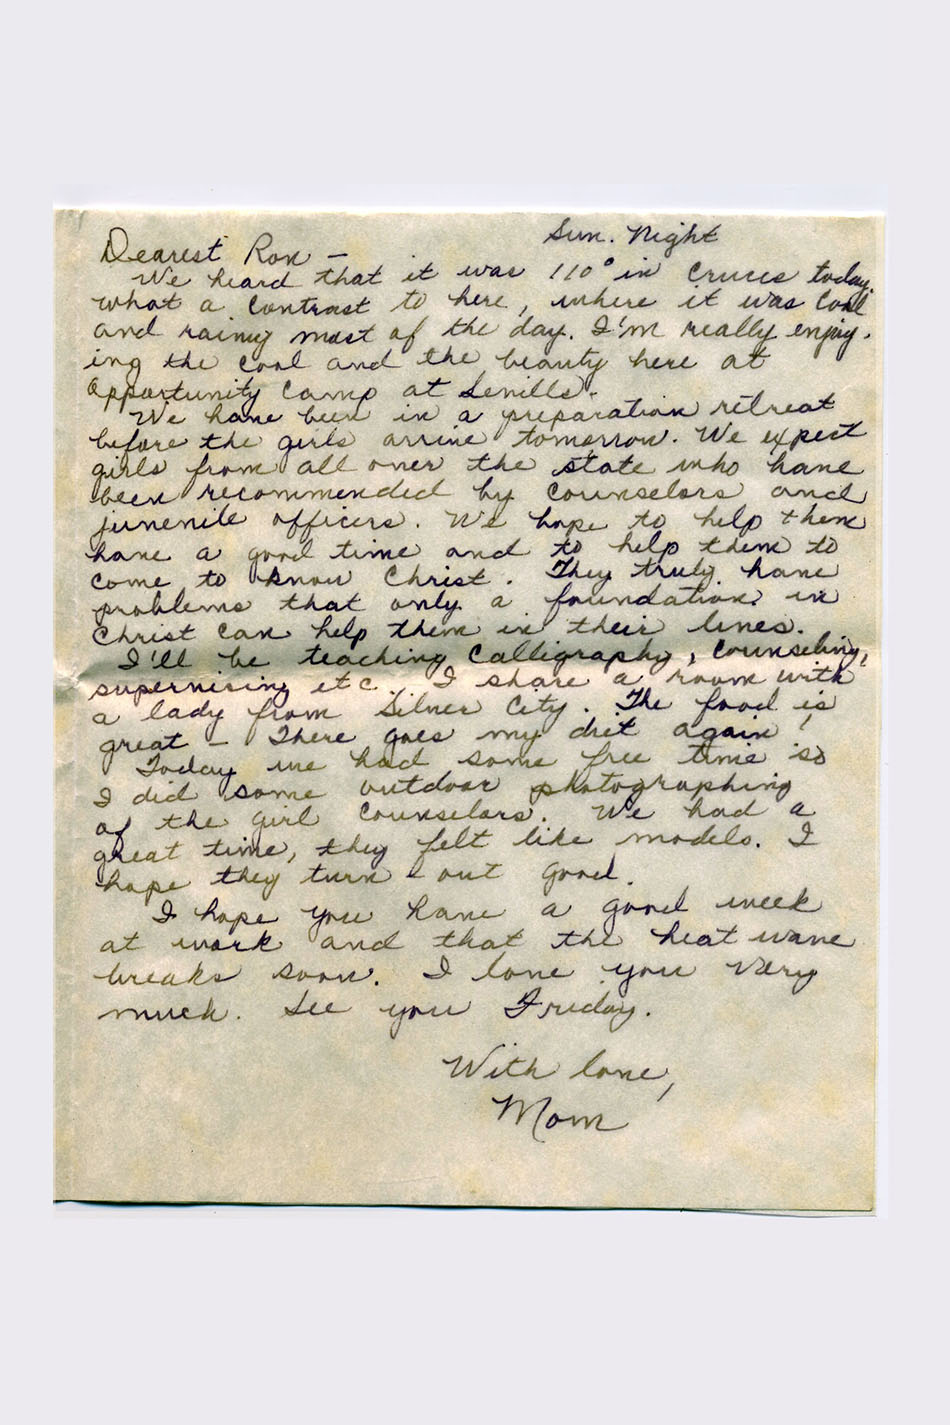 Sun. Night
Dearest Ron -
We heard that it was 110° in Cruces today.
what a contrast to here, where it was cool
and rainy most of the day. I'm really enjoy-
ing the cool and the beauty here at
Opportunity Camp at Sevills.
We have been in a preparation retreat
before the girls arrive tomorrow. We expect
girls from all over the state who have
been recommended by counselors and
juvenile officers. We hope to help them
have a good time and to help them to
come to know Christ. They truly have
problems that only a foundation in
Christ can help them in their lives.
I'll be teaching Calligraphy, counseling,
supervising etc. I share a room with
a lady from Silver City. The food is
great - There goes my diet again!
Today we had some free time so
I did some outdoor photographing
of the girl counselors. We had a
great time, they felt like models. I
hope they turn out good.
I hope you have a good week
at work and that the heat wave
breaks soon. I love you very
much. See you Friday.
With love,
Mom